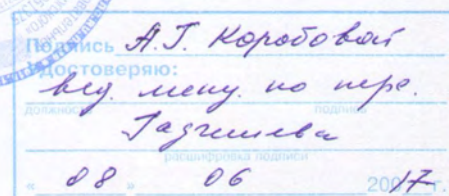 Подпись А.Г. Коробовой
удостоверяю:
вед. менд. по перс.
должность подпись
расшифровка подписи
« 08 » 06 2017 г.